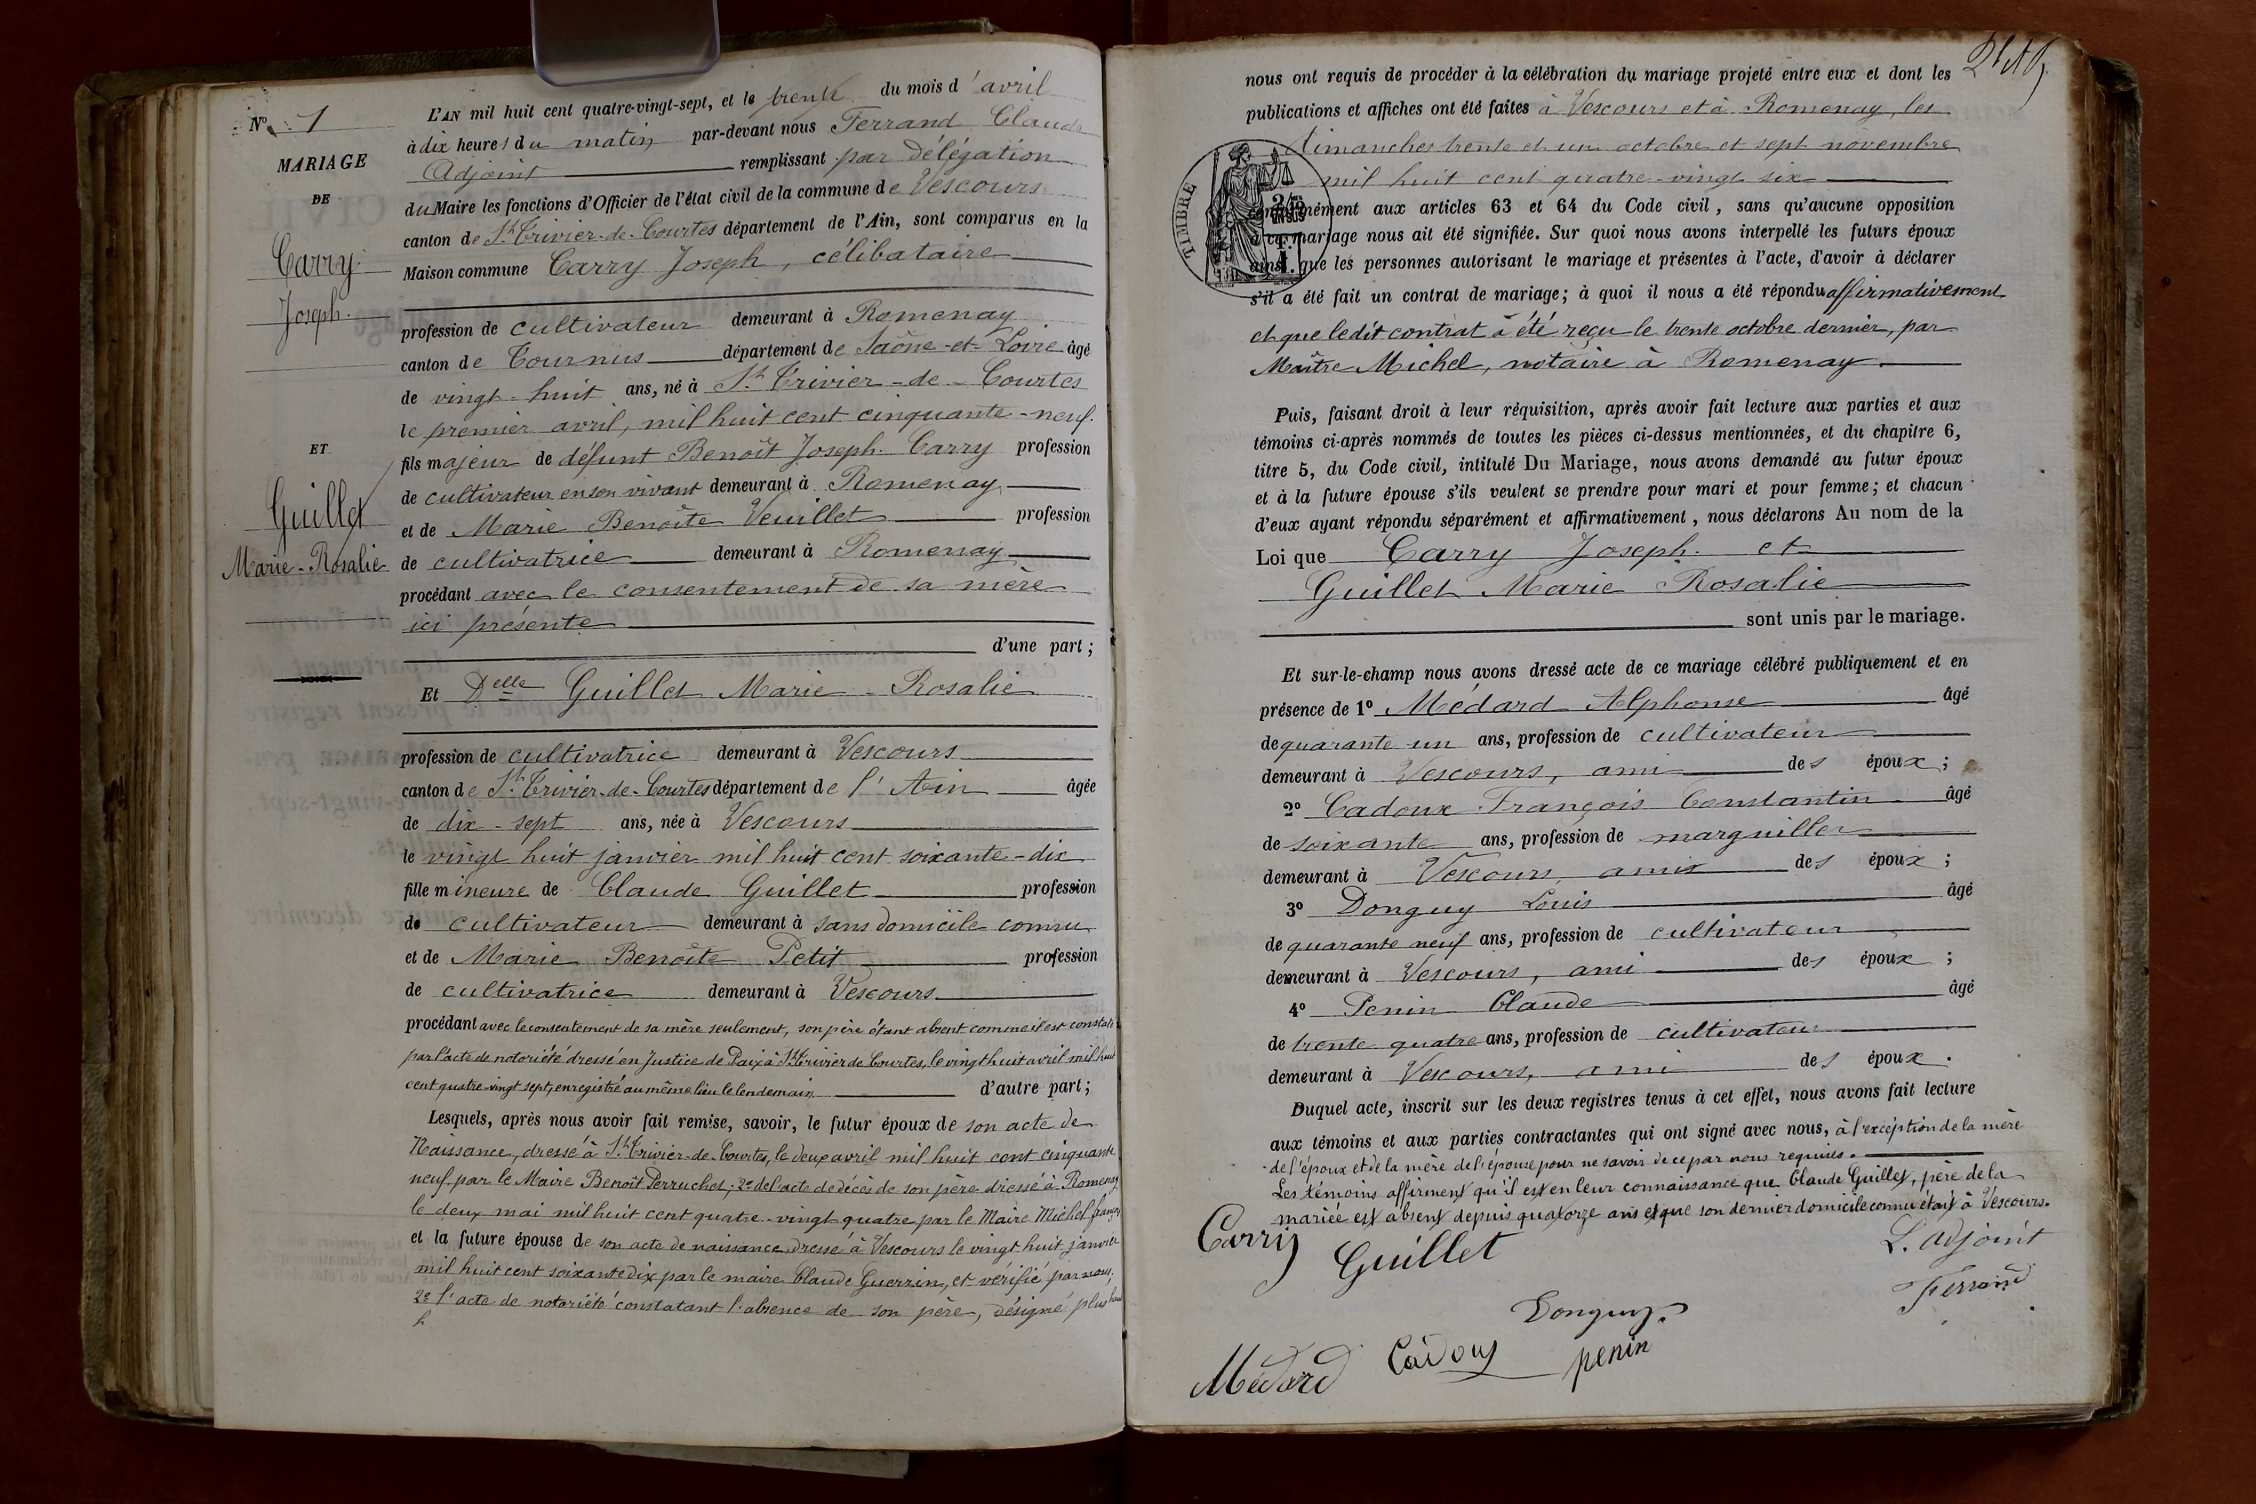 N° 1
MARIAGE
DE
Carry
Joseph.
ET
Guillet
Marie-Rosalie
L'AN mil huit cent quatre-vingt-sept, et le trente du mois d'avril
à dix heures du matin par-devant nous Ferrand Claude
Adjoint remplissant par délégation
du Maire les fonctions d'Officier de l'état civil de la commune de Vescours
canton de St Trivier-de-Courtes département de l'Ain, sont comparus en la
Maison commune Carry Joseph, célibataire
profession de cultivateur demeurant à Romenay
canton de Tournus département de Saône-et-Loire âgé
de vingt-huit ans, né à St Trivier-de-Courtes
le premier avril, mil huit cent cinquante-neuf.
fils majeur de défunt Benoît Joseph Carry profession
de cultivateur en son vivant demeurant à Romenay
et de Marie Benoîte Veuillet profession
de cultivatrice demeurant à Romenay
procédant avec le consentement de sa mère
ici présente
d'une part ;
Et Delle Guillet Marie-Rosalie
profession de cultivatrice demeurant à Vescours
canton de St Trivier-de-Courtes département de l'Ain âgée
de dix-sept ans, née à Vescours
le vingt huit janvier mil huit cent soixante-dix
fille mineure de Claude Guillet profession
de cultivateur demeurant à sans domicile connu
et de Marie Benoîte Petit profession
de cultivatrice demeurant à Vescours
procédant avec le consentement de sa mère seulement, son père étant absent comme il est constaté
par l'acte de notoriété dressé en Justice de Paix à St Trivier de Courtes, le vingt huit avril mil huit
cent quatre-vingt sept, enregistré au même lieu le lendemain d'autre part ;
Lesquels, après nous avoir fait remise, savoir, le futur époux de son acte de
Naissance, dressé à St Trivier-de-Courtes, le deux avril mil huit cent cinquante
neuf par le Maire Benoît Perruchet ; 2° de l'acte de décès de son père dressé à Romenay
le deux mai mil huit cent quatre-vingt quatre par le Maire Michel françois
et la future épouse de son acte de naissance dressé à Vescours le vingt-huit janvier
mil huit cent soixante dix par le maire Claude Guerrin, et vérifié par nous,
2° l'acte de notoriété constatant l'absence de son père, désigné plus haut
nous ont requis de procéder à la célébration du mariage projeté entre eux et dont les
publications et affiches ont été faites à Vescours et à Romenay, les
dimanches trente et un octobre et sept novembre
mil huit cent quatre-vingt six
TIMBRE
conformément aux articles 63 et 64 du Code civil, sans qu'aucune opposition
à ce mariage nous ait été signifiée. Sur quoi nous avons interpellé les futurs époux
ainsi que les personnes autorisant le mariage et présentes à l'acte, d'avoir à déclarer
s'il a été fait un contrat de mariage ; à quoi il nous a été répondu affirmativement
et que ledit contrat a été reçu le trente octobre dernier, par
Maître Michel, notaire à Romenay.
Puis, faisant droit à leur réquisition, après avoir fait lecture aux parties et aux
témoins ci-après nommés de toutes les pièces ci-dessus mentionnées, et du chapitre 6,
titre 5, du Code civil, intitulé Du Mariage, nous avons demandé au futur époux
et à la future épouse s'ils veulent se prendre pour mari et pour femme ; et chacun
d'eux ayant répondu séparément et affirmativement, nous déclarons Au nom de la
Loi que Carry Joseph et
Guillet Marie Rosalie
sont unis par le mariage.
Et sur-le-champ nous avons dressé acte de ce mariage célébré publiquement et en
présence de 1° Médard Alphonse âgé
de quarante un ans, profession de cultivateur
demeurant à Vescours, ami des époux ;
2° Cadoux François Constantin âgé
de soixante ans, profession de marguiller
demeurant à Vescours, ami des époux ;
3° Donguy Louis âgé
de quarante neuf ans, profession de cultivateur
demeurant à Vescours, ami des époux ;
4° Penin Claude âgé
de trente quatre ans, profession de cultivateur
demeurant à Vescours, ami des époux.
Duquel acte, inscrit sur les deux registres tenus à cet effet, nous avons fait lecture
aux témoins et aux parties contractantes qui ont signé avec nous, à l'exception de la mère
de l'époux et de la mère de l'épouse pour ne savoir de ce par nous requises.
Les témoins affirment qu'il est en leur connaissance que Claude Guillet, père de la
mariée est absent depuis quatorze ans et que son dernier domicile connu était à Vescours.
Carry
Guillet
L'adjoint
Ferrand
Donguy
Médard
Cadoux
penin